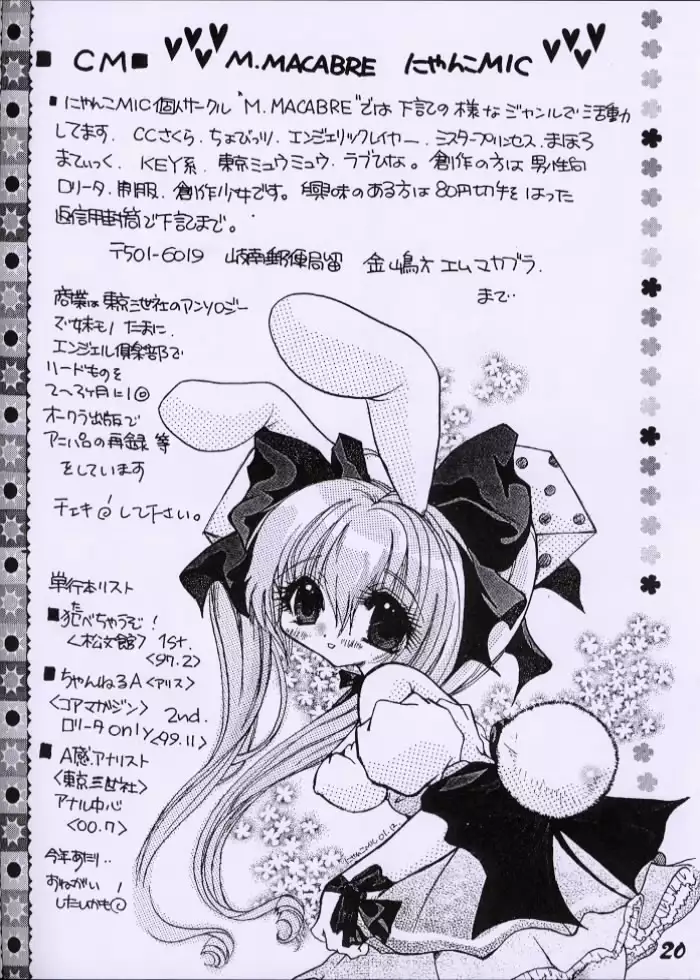 ■ CM■ M.MACABRE にゃんこMIC
■にゃんこMIC個人サークル“M.MACABRE”では下記の様なジャンルで活動
してます. CCさくら. ちょびっツ. エンジェリックレイヤー. ミスタープリンセス. まほろ
まてぃっく. KEY系. 東京ミュウミュウ. ラブひな。創作の方は男性向
ロリータ. 制服. 創作少女です。興味のある方は80円切手をはった
返信用封筒で下記まで。
〒501-6019 岐南郵便局留 金嶋方エムマカブラ.
まで..
商業は東京三世社のアンソロジー
で妹モノ たまに.
エンジェル倶楽部で
ハードものを
2〜3ヶ月に1回
オークラ出版で
アニパロの再録 等
をしています
チェキ!して下さい。
単行本リスト
■たべちゃうぞ!
<松文館> 1st.
<97.2>
■ちゃんねるA<アリス>
<コアマガジン> 2nd.
ロリータonly<99.11>
■A感.アナリスト
<東京三世社>
アナル中心
<00.7>
今年あたり..
おねがい!
したいかも
にゃんこMIC 01.12.
20